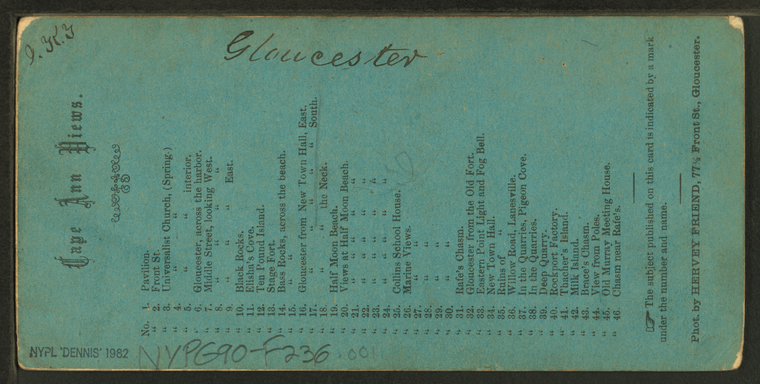 J. K. Y
Gloucester
Cape Ann Views.
No. 1. Pavilion.
" 2. Front St.
" 3. Universalist Church, (Spring.)
" 4. " "
" 5. " " interior.
" 6. Gloucester, across the harbor.
" 7. Middle Street, looking West.
" 8. " " "
" 9. " " " East.
" 10. Black Rocks.
" 11. Elisha's Cove.
" 12. Ten Pound Island.
" 13. Stage Fort.
" 14. Bass Rocks, across the beach.
" 15. " "
" 16. Gloucester from New Town Hall, East.
" 17. " " " " South.
" 18. " " the Neck.
" 19. Half Moon Beach.
" 20. Views at Half Moon Beach.
" 21. " " " "
" 22. " " " "
" 23. " " " "
" 24. " " " "
" 25. Collins School House.
" 26. Marine Views.
" 27. " "
" 28. " "
" 29. " "
" 30. " "
" 31. Rafe's Chasm.
" 32. Gloucester from the Old Fort.
" 33. Eastern Point Light and Fog Bell.
" 34. New Town Hall.
" 35. Ruins of "
" 36. Willow Road, Lanesville.
" 37. In the Quarries, Pigeon Cove.
" 38. In the Quarries.
" 39. Deep Quarry.
" 40. Rockport Factory.
" 41. Thacher's Island.
" 42. Milk Island.
" 43. Brace's Chasm.
" 44. View from Poles.
" 45. Old Murray Meeting House.
" 46. Chasm near Rafe's.
☞ The subject published on this card is indicated by a mark
under the number and name.
Phot. by HERVEY FRIEND, 77½ Front St., Gloucester.
NYPL 'DENNIS' 1982
NYPG90-F236 .001